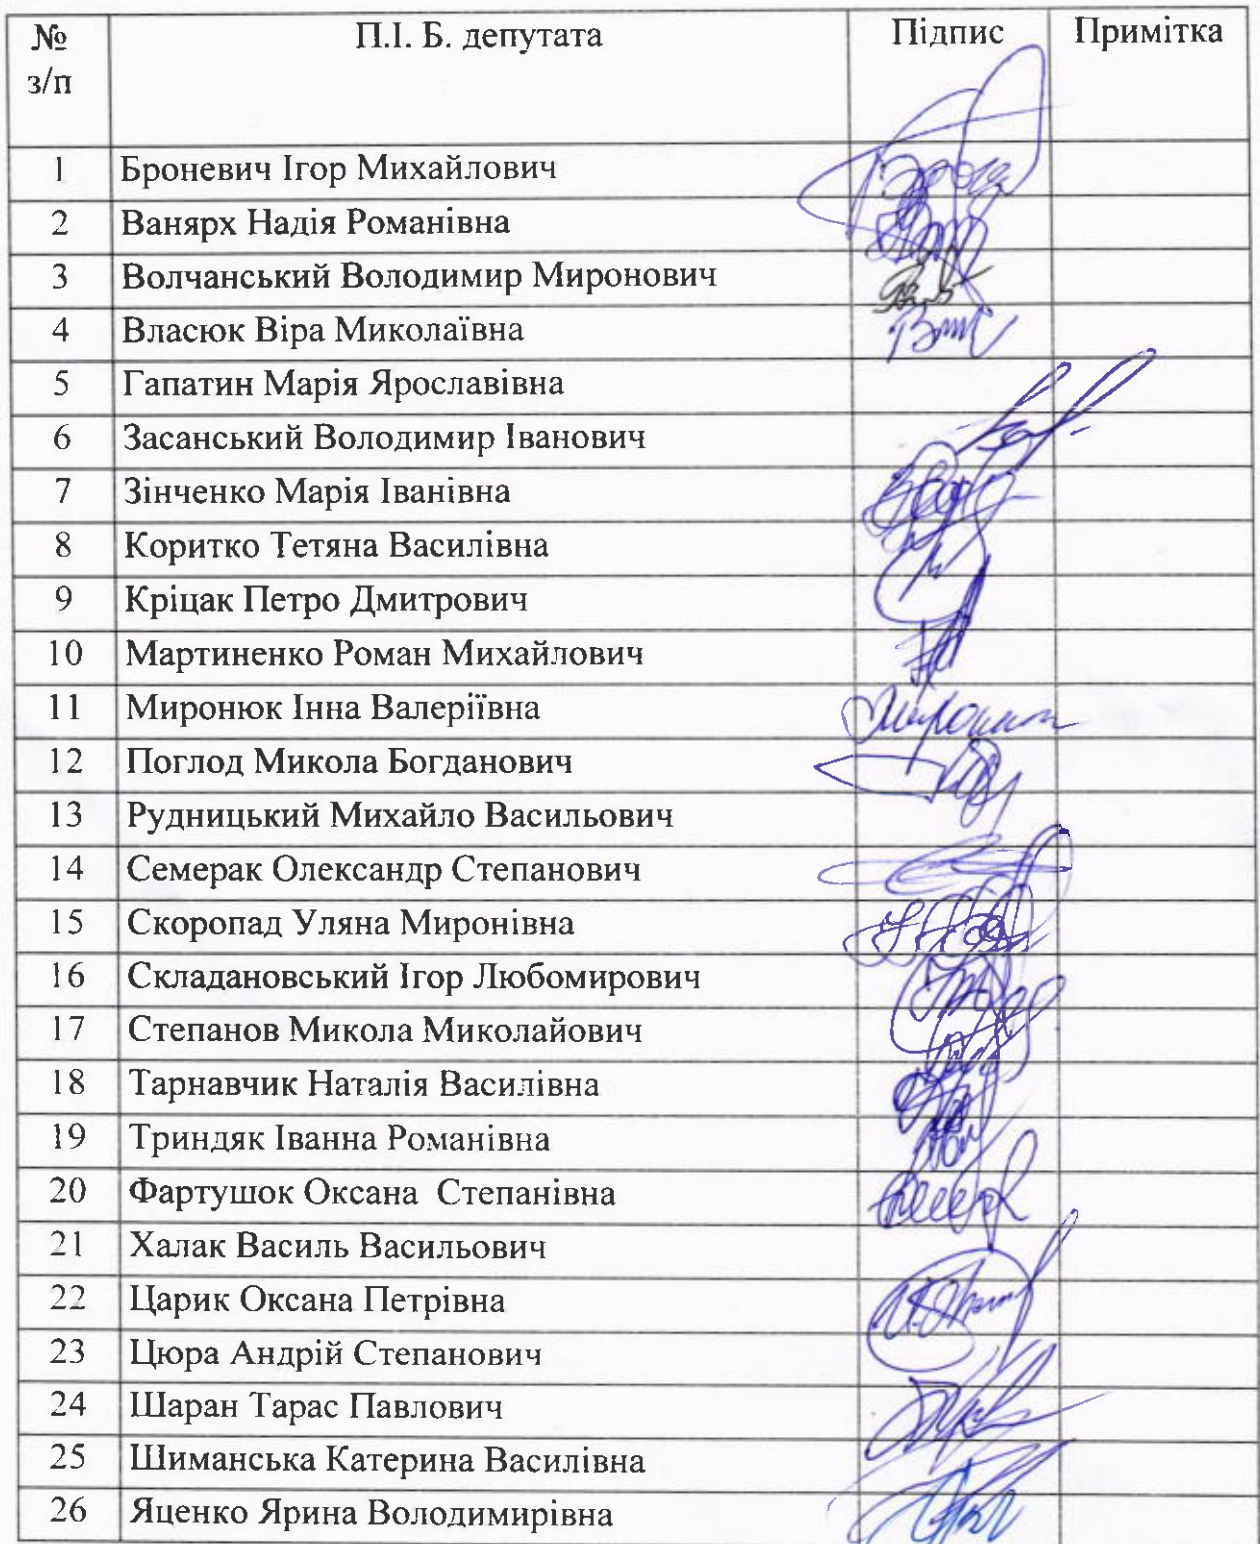 № з/п П.І. Б. депутата Підпис Примітка
1 Броневич Ігор Михайлович
2 Ванярх Надія Романівна
3 Волчанський Володимир Миронович
4 Власюк Віра Миколаївна
5 Гапатин Марія Ярославівна
6 Засанський Володимир Іванович
7 Зінченко Марія Іванівна
8 Коритко Тетяна Василівна
9 Кріцак Петро Дмитрович
10 Мартиненко Роман Михайлович
11 Миронюк Інна Валеріївна
12 Поглод Микола Богданович
13 Рудницький Михайло Васильович
14 Семерак Олександр Степанович
15 Скоропад Уляна Миронівна
16 Складановський Ігор Любомирович
17 Степанов Микола Миколайович
18 Тарнавчик Наталія Василівна
19 Триндяк Іванна Романівна
20 Фартушок Оксана Степанівна
21 Халак Василь Васильович
22 Царик Оксана Петрівна
23 Цюра Андрій Степанович
24 Шаран Тарас Павлович
25 Шиманська Катерина Василівна
26 Яценко Ярина Володимирівна